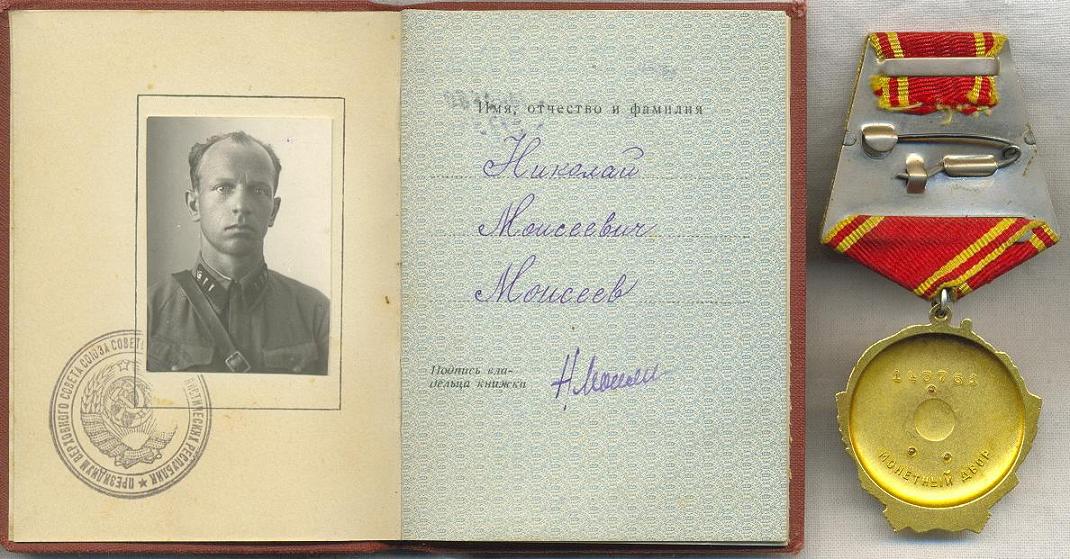 ПРЕЗИДИУМ ВЕРХОВНОГО СОВЕТА СОЮЗА СОВЕТСКИХ СОЦИАЛИСТИЧЕСКИХ РЕСПУБЛИК
Имя, отчество и фамилия
Николай
Моисеевич
Моисеев
Подпись вла-
дельца книжки
МОНЕТНЫЙ ДВОР